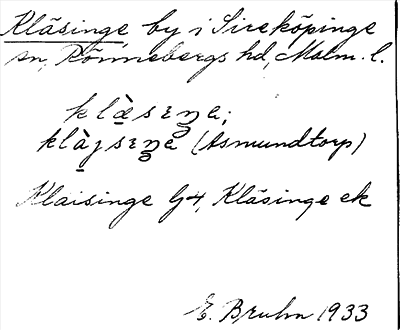 Kläsinge, by i Sireköpinge
sn, Rönnebergs hd, Malm. l.
klæ̀sɛŋe;
klàjsɛŋe (Asmundtorp)
Klaisinge G4, Kläsinge ek
E. Bruhn 1933